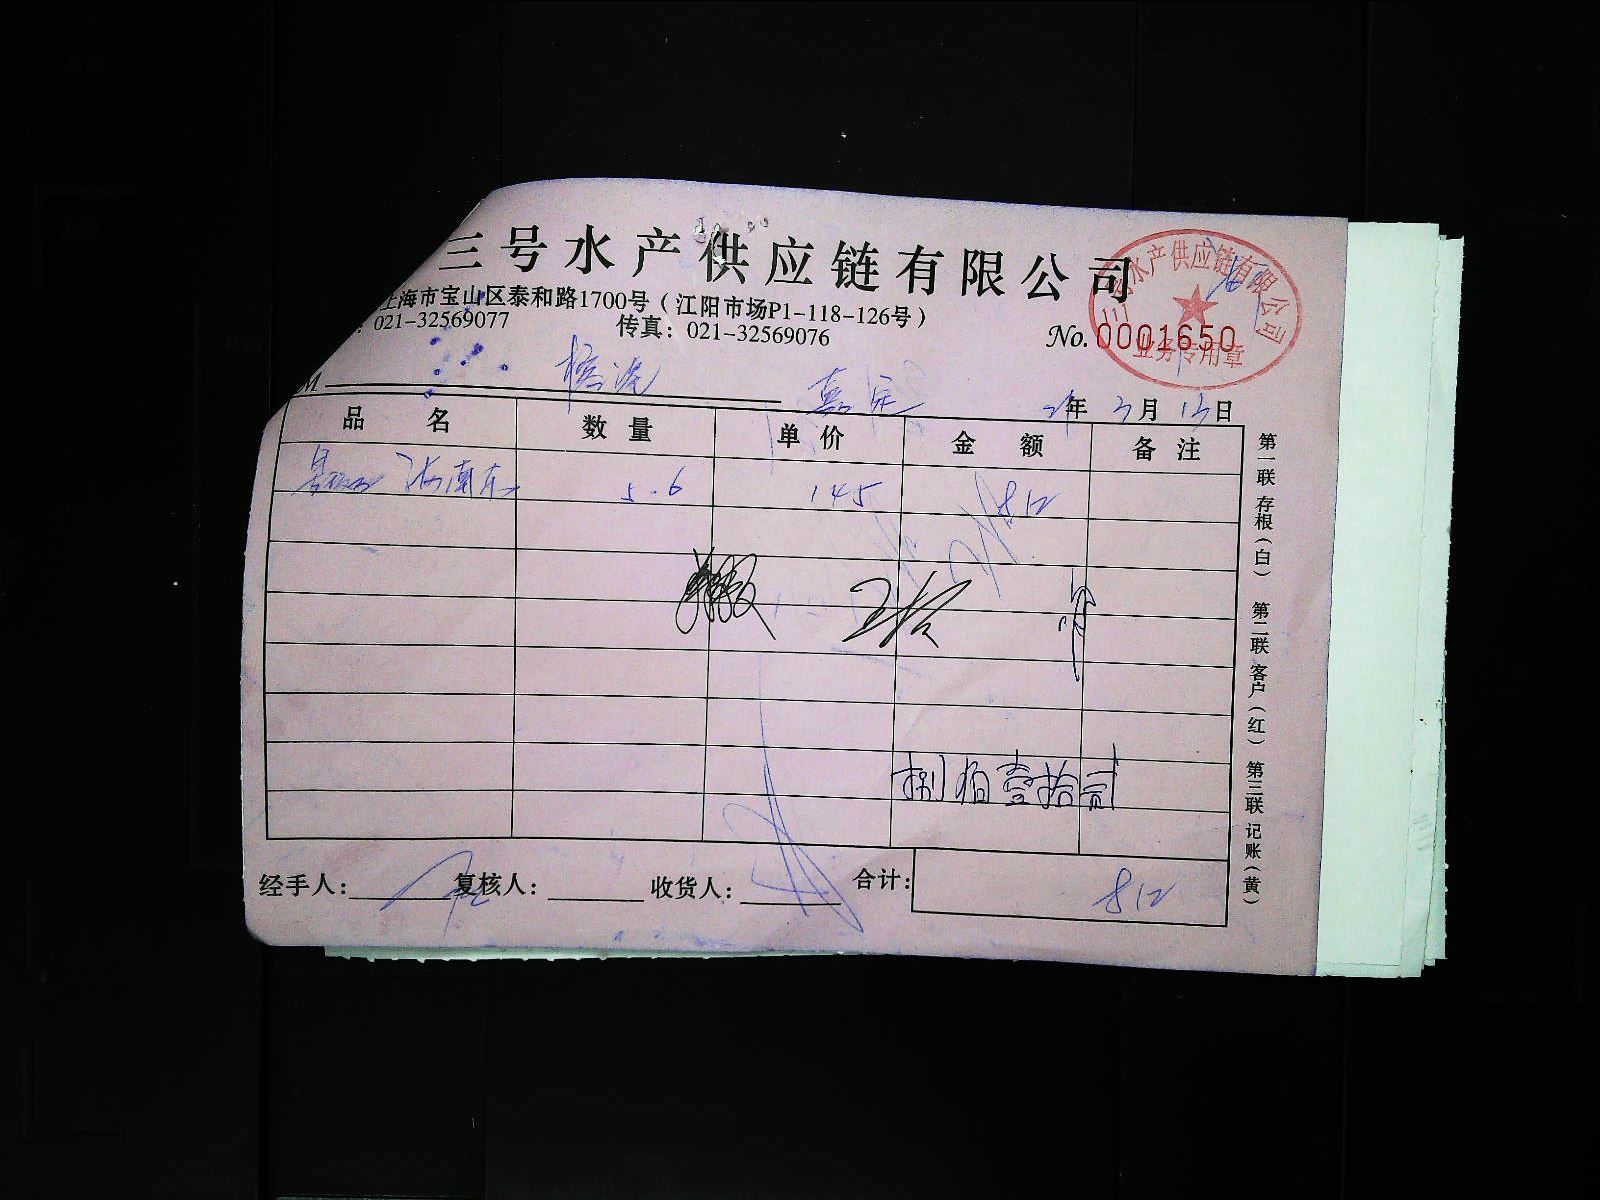 三号水产供应链有限公司
上海市宝山区泰和路1700号（江阳市场P1-118-126号）
：021-32569077 传真：021-32569076
No. 0001650
水产供应链有限公司
业务专用章
M 嘉定
年 3月 13日
品名 数量 单价 金额 备注
海南东 5.6 145 812
捌佰壹拾贰
经手人： 复核人： 收货人： 合计： 812
第一联 存根（白） 第二联 客户（红） 第三联 记账（黄）